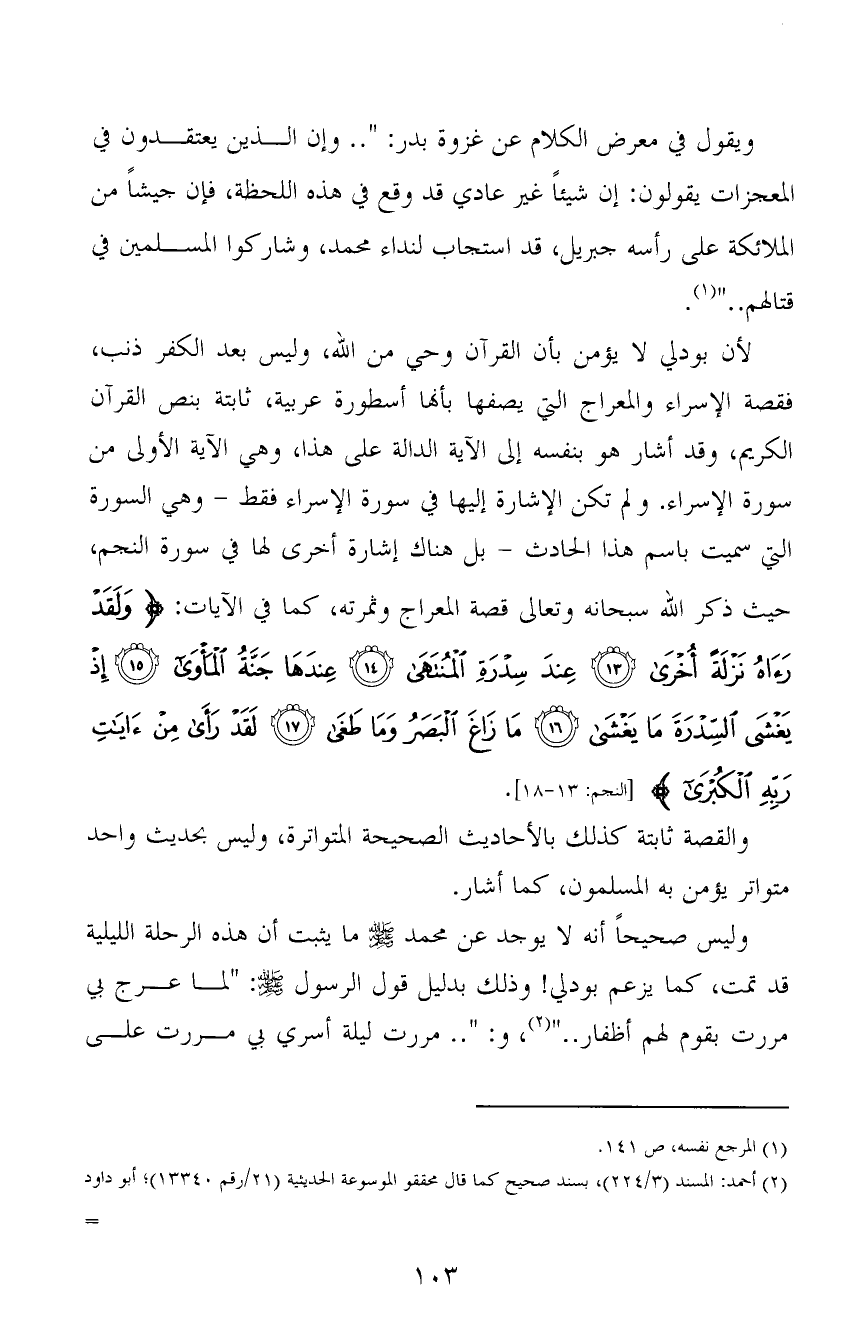 ويقول في معرض الكلام عن غزوة بدر: ".. وإن الـــذين يعتقـــدون في
المعجزات يقولون: إن شيئاً غير عادي قد وقع في هذه اللحظة، فإن جيشاً من
الملائكة على رأسه جبريل، قد استجاب لنداء محمد، وشاركوا المســـلمين في
قتالهم.."(١).
لأن بودلي لا يؤمن بأن القرآن وحي من الله، وليس بعد الكفر ذنب،
فقصة الإسراء والمعراج التي يصفها بأنها أسطورة عربية، ثابتة بنص القرآن
الكريم، وقد أشار هو بنفسه إلى الآية الدالة على هذا، وهي الآية الأولى من
سورة الإسراء. و لم تكن الإشارة إليها في سورة الإسراء فقط – وهي السورة
التي سميت باسم هذا الحادث – بل هناك إشارة أخرى لها في سورة النجم،
حيث ذكر الله سبحانه وتعالى قصة المعراج وثمرته، كما في الآيات: ﴿ وَلَقَدْ
رَءَاهُ نَزْلَةً أُخْرَىٰ ۝١٣ عِندَ سِدْرَةِ ٱلْمُنتَهَىٰ ۝١٤ عِندَهَا جَنَّةُ ٱلْمَأْوَىٰٓ ۝١٥ إِذْ
يَغْشَى ٱلسِّدْرَةَ مَا يَغْشَىٰ ۝١٦ مَا زَاغَ ٱلْبَصَرُ وَمَا طَغَىٰ ۝١٧ لَقَدْ رَأَىٰ مِنْ ءَايَٰتِ
رَبِّهِ ٱلْكُبْرَىٰٓ ﴾ [النجم: ١٣-١٨].
والقصة ثابتة كذلك بالأحاديث الصحيحة المتواترة، وليس بحديث واحد
متواتر يؤمن به المسلمون، كما أشار.
وليس صحيحاً أنه لا يوجد عن محمد ﷺ ما يثبت أن هذه الرحلة الليلية
قد تمت، كما يزعم بودلي! وذلك بدليل قول الرسول ﷺ: "لمـــا عـــرج بي
مررت بقوم لهم أظفار.."(٢)، و: ".. مررت ليلة أسري بي مـــررت علـــى
(١) المرجع نفسه، ص ١٤١.
(٢) أحمد: المسند (٢٢٤/٣)، بسند صحيح كما قال محققو الموسوعة الحديثية (٢١/رقم ١٣٣٤٠)؛ أبو داود
=
١٠٣